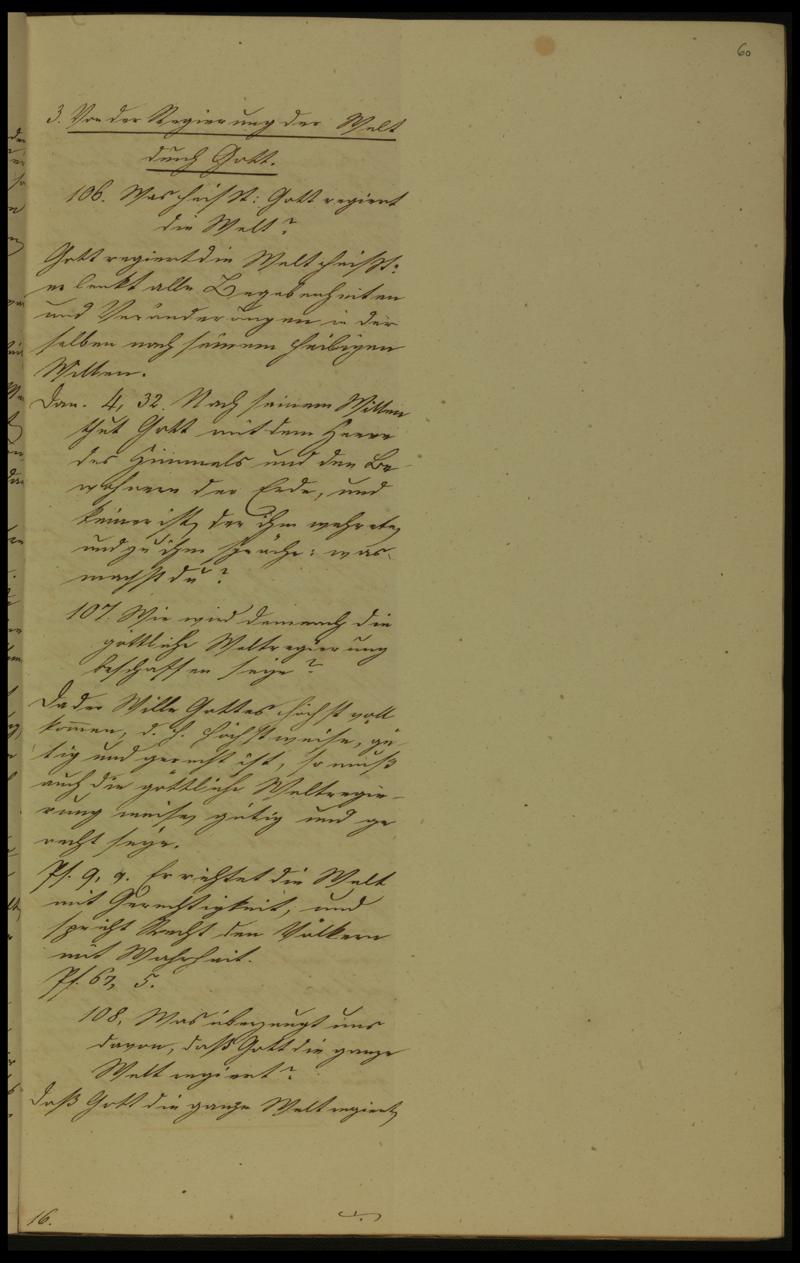 60
3. Von der Regierung der Welt
durch Gott.
106. Was heißt: Gott regiert
die Welt?
Gott regiert die Welt heißt:
er lenkt alle Begebenheiten
und Veränderungen in der
selben nach seinem heiligen
Willen.
Dan. 4, 32. Nach seinem Willen
thut Gott mit dem Heere
des Himmels und den Be-
wohnern der Erde, und
keiner ist, der ihm wehrete,
und zu ihm spräche: was
machst du?
107. Wie wird demnach die
göttliche Weltregierung
beschaffen seyn?
Da der Wille Gottes höchst voll
kom̄en, d. h. höchst weise, gü-
tig und gerecht ist, so muß
auch die göttliche Weltregie-
rung weise, gütig und ge
recht seyn.
Ps. 9, 9. Er richtet die Welt
mit Gerechtigkeit, und
spricht Recht den Völkern
mit Wahrheit.
Ps. 67, 5.
108. Was überzeugt uns
davon, daß Gott die ganze
Welt regiert?
Daß Gott die ganze Welt regiert,
16.